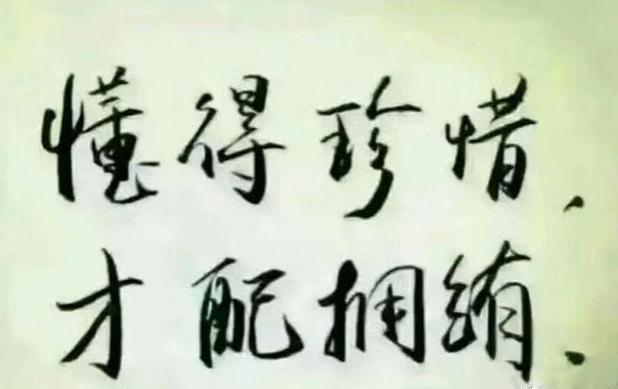 懂得珍惜.
才配拥有.